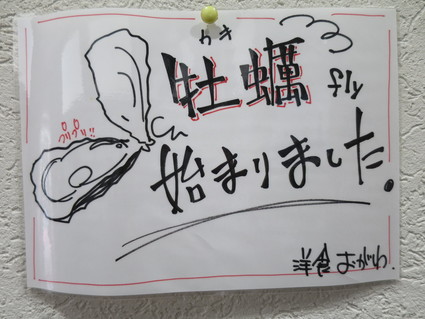 カキ
牡蠣 fly
プリプリ!!
始まりました.
洋食 おがわ.